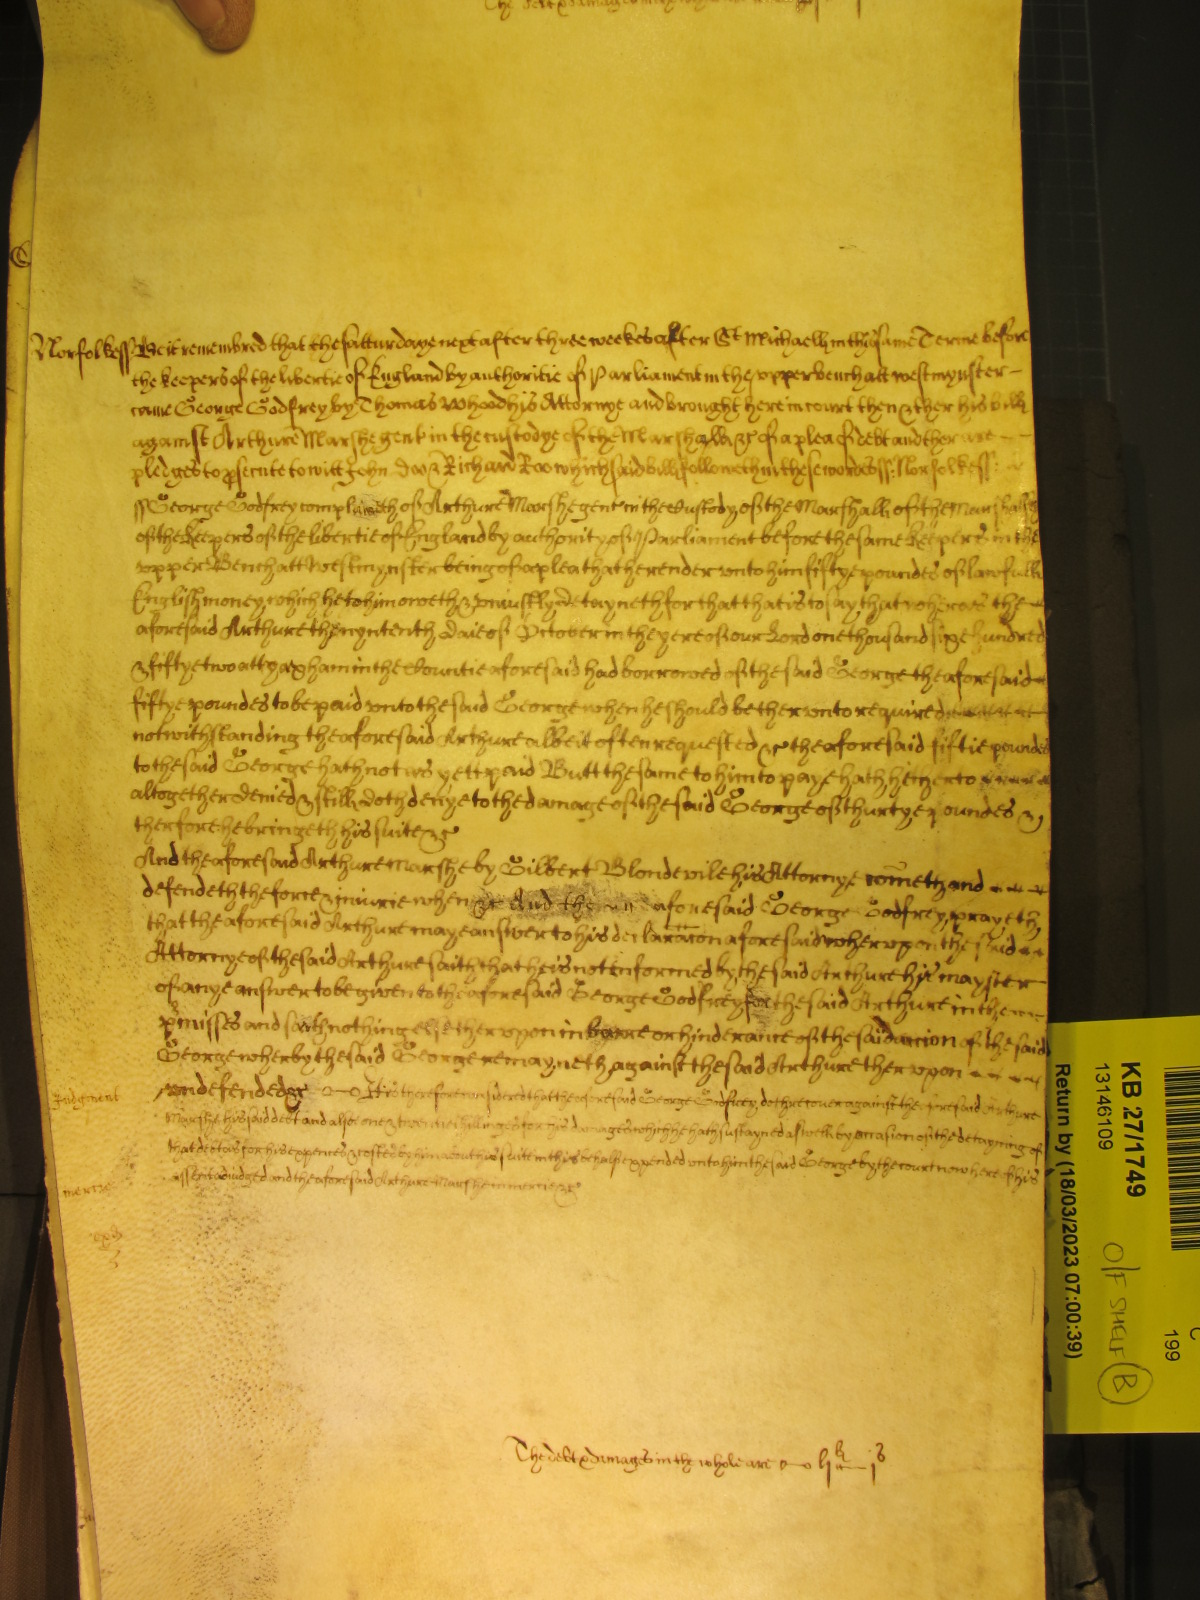 Norfolke ss Be it remembred that the satturdaye next after three weekes after St Michaell in this same Terme before
the keepers of the libertie of England by authoritie of Parliament in the upper bench att westmynster
came George Godfrey by Thomas Whood his Attornye and brought here in court then & ther his bill
against Arthure Marshe gent in the custodye of the Marshall &c of a plea of debt and ther are
pledges to prosecute to witt John Doo & Richard Roo which said bill followeth in these wordes ss: Norfolke ss:
ss George Godfrey complaineth of Arthure Marshe gent in the Custody of the Marshall of the Marshalsey
of the Keepers of the libertie of England by authority of Parliament before the same Keepers in the
upper Bench att Westmynster being of a plea that he render unto him fiftye poundes of lawfull
English money which he to him oweth & uniustly detayneth for that that is to say that wheras the
aforesaid Arthure the nyntenth daie of October in the yere of our Lord one thousand sixe hundred
& fiftye two att yaxham in the Countie aforesaid had borrowed of the said George the aforesaid
fiftye poundes to be paid unto the said George when he should be therunto required
notwithstanding the aforesaid Arthure albeit often requested &c the aforesaid fiftie poundes
to the said George hath not as yett paid Butt the same to him to paye hath hitherto
altogether denied & still doth denye to the damage of the said George of thurtye poundes &
therfore he bringeth his suite &c
And the aforesaid Arthure Marshe by Gilbert Blondevile his Attornye cometh and
defendeth the force & iniurie when &c And the aforesaid George Godfrey prayeth
that the aforesaid Arthure maye answer to his declaracon aforesaid wherupon the said
Attornye of the said Arthure saith that he is not enformed by the said Arthure his mayster
of anye answer to be given to the aforesaid George Godfrey for the said Arthure in the
pmisses and saith nothing else therupon in barre or hinderance of the said accion of the said
George wherby the said George remayneth against the said Arthure therupon
undefended &c It is therefore considered that the aforesaid George Godfrey doth recover against the aforesaid Arthure
Judgment
Marshe his said debt and also one & twentie shillinges for his damages which he hath sustayned aswell by occasion of the detayning of
that debt as for his expences & costes by him about his suite in this behalfe expended unto him the said George by the court now here of his
assent adiudged and the aforesaid Arthure Marshe in mercie &c
mercie
The debt & damages in the whole are li li j s
KB 27/1749
13146109
Return by (18/03/2023 07:00:39)
O/F SHELF B
C
199